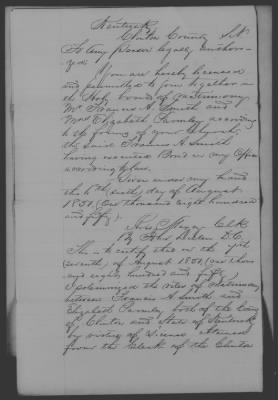 Kentucky
Clinton County Sct
To Any person legally authori-
zed
You are hereby licensed
and permitted to join together in
the Holy bonds of matrimony
Mr Francis A Smith and
Miss Elizabeth Parmley according
to the forms of your Church,
the said Francis A Smith
having executed Bond in my Office
according to law.
Given under my hand
the 6th (sixth) day of August
1850. (One thousand eight hundred
and fifty).
Clk
By John D.C.
This is to certify that on the 7th
(seventh) of August 1850, (one thous-
and eight hundred and fifty)
I solemnized the rites of matrimony
between Francis A Smith and
Elizabeth Parmley, both of the County
of Clinton and State of Kentucky
by virtue of License obtained
from the Clerk of the Clinton